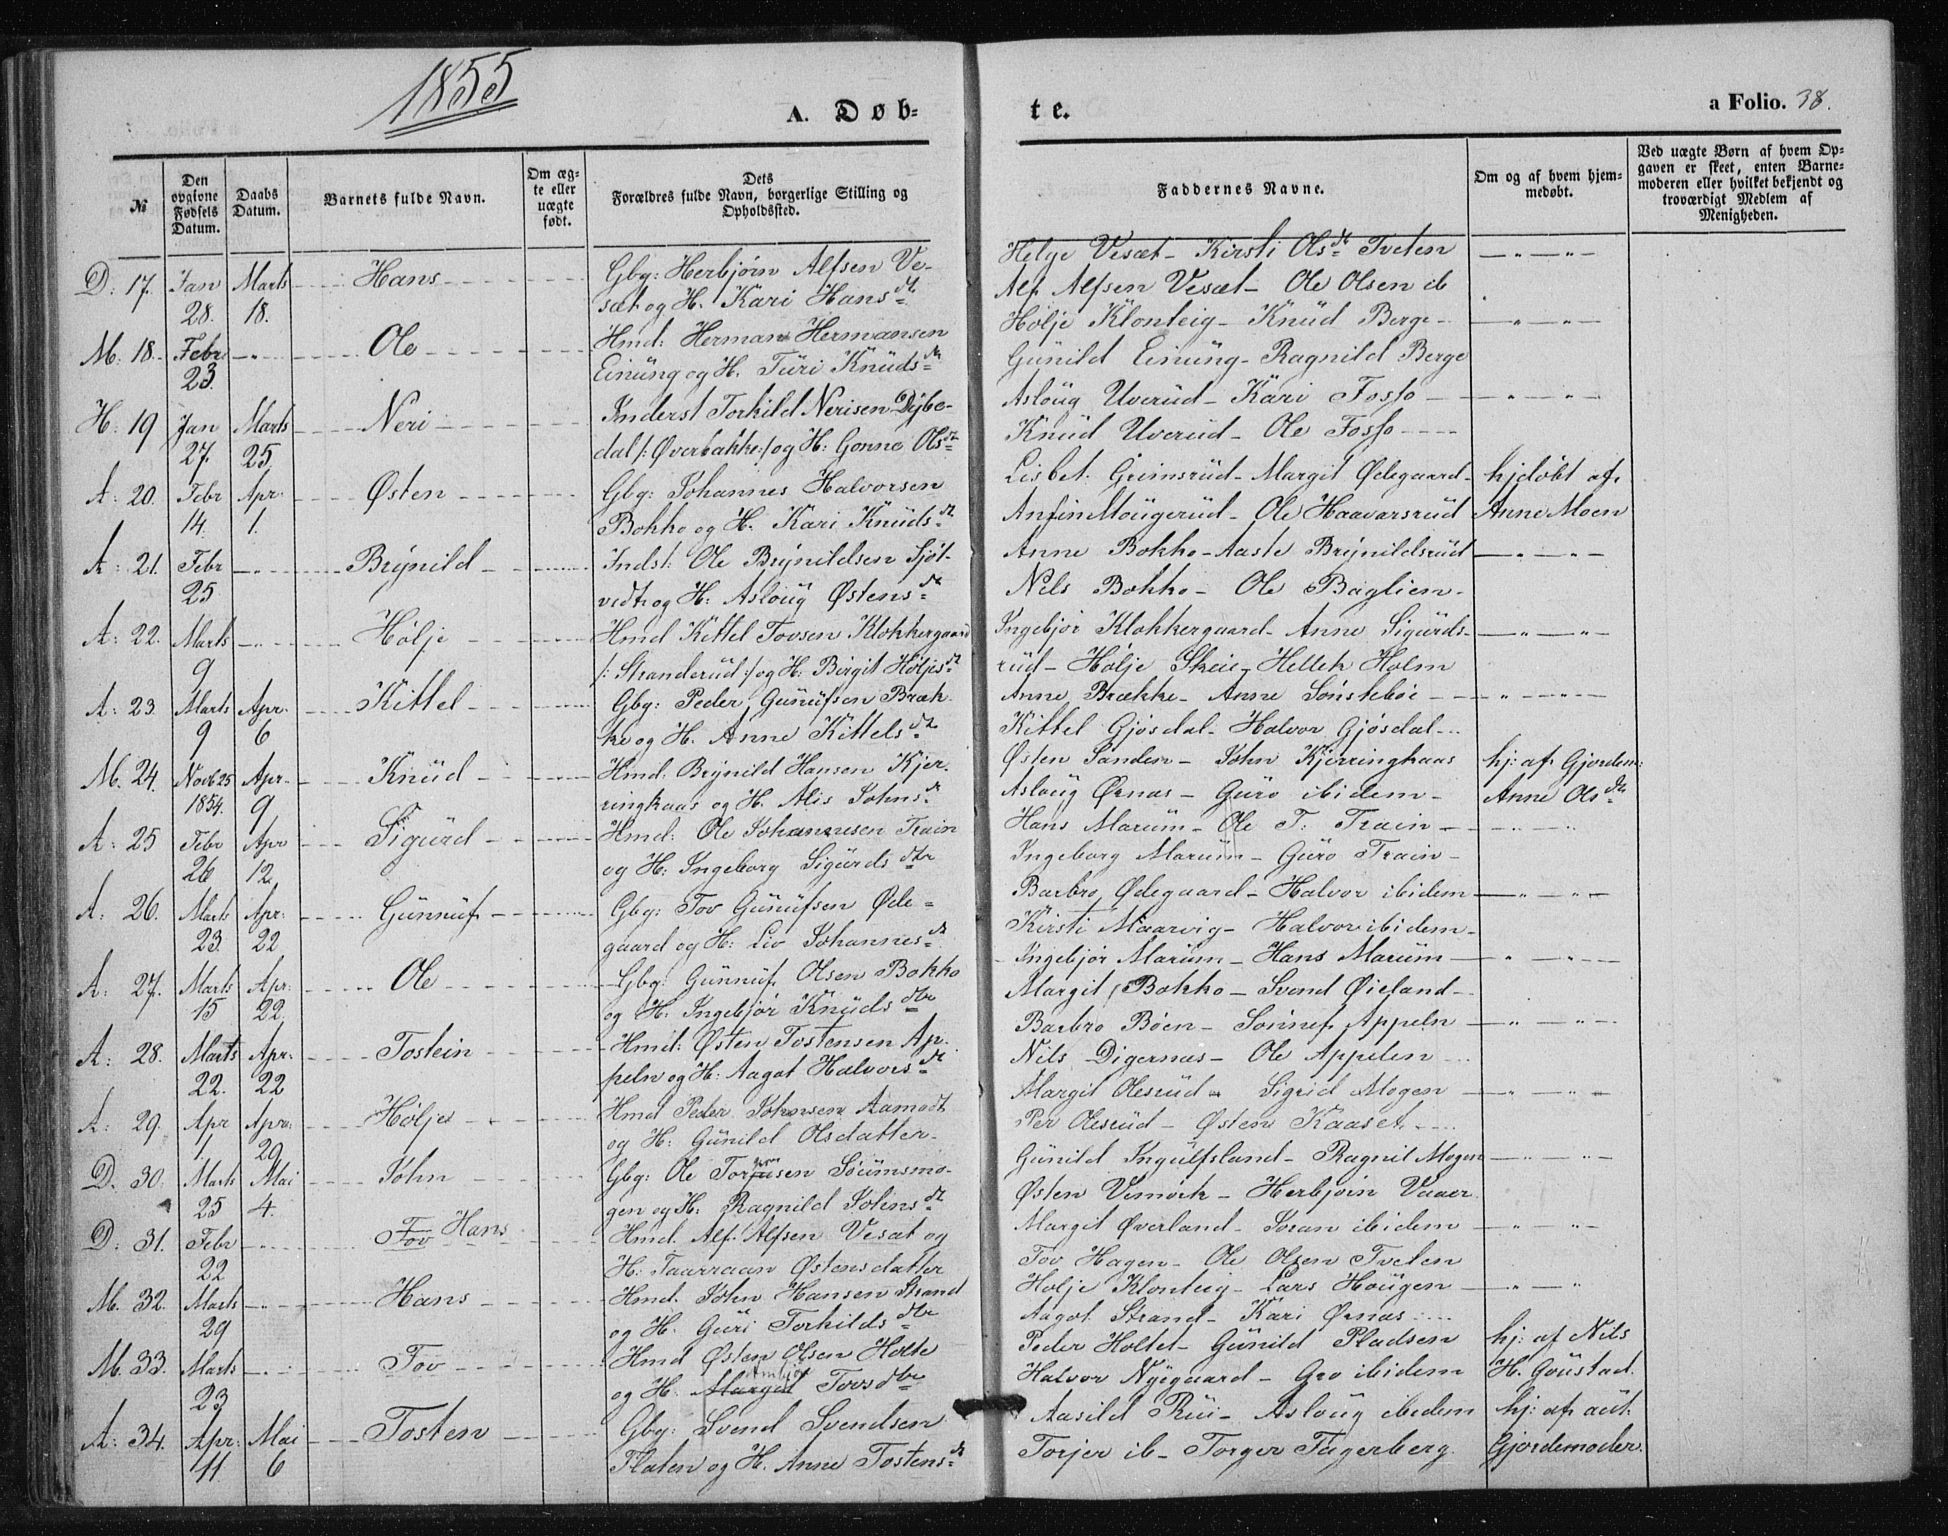 1855
A. Døb=
te.
a Folio. 38.
№
Den opgivne Fødsels Datum.
Daabs Datum.
Barnets fulde Navn.
Om ægte eller uægte født.
Dets Forældres fulde Navn, borgerlige Stilling og Opholdssted.
Faddernes Navne.
Om og af hvem hjemmedøbt.
Ved uægte Børn af hvem Opgaven er skeet, enten Barnemoderen eller hvilket bekjendt og troværdigt Medlem af Menigheden.
D: 17. Jan 28. Marts 18. Hans
Gbg: Herbjørn Alfsen Ve-
sæt og H. Kari Hansdt.
Helge Vesæt - Kirsti Olsdt Tveten
Alf Alfsen Vesæt - Ole Olsen ib
M. 18. Febr 23. -"- Ole
Hmd: Herman Hermansen
Einung og H. Turi Knudsdt
Holje Klonteig - Knud Berge
Gunild Einung - Ragnild Berge
H: 19 Jan 27. Marts 25. Neri
Inderst Torkild Nerisen Dybe-
dal /: Øverbakke:/ og H: Gonne Olsdt
Asloug Uverud - Kari Fosso
Knud Uverud - Ole Fosso
A: 20. Febr 14. Apr. 1. Østen
Gbg: Johannes Halvorsen
Bokko og H. Kari Knudsdt
Lisbet Grimsrud - Margit Ødegaard
Anfin Mougerud - Ole Haavarsrud
hjdøbt af
Anne Moen
A: 21. Febr 25 -"- Brynild
Indst: Ole Brynildsen Sjöt-
vedt og H: Asloug Østensdt
Anne Bokko - Aaste Brynildsrud
Nels Bokko - Ole Baglien
A: 22. Marts 9 -"- Hølje
Hmd Kittel Tovsen Klokkergaard
/: Stranderud:/ og H: Birgit Høljesdt
Ingebjør Klokkergaard - Anne Sigurds-
rud - Hølje Skeie - Hellek Holm
A: 23. Marts 9 Apr. 6 Kittel
Gbg: Peder Gunufsen Bræk-
ke og H. Anne Kittelsdt
Anne Brække - Anne Sønstebøe
Kittel Gjøsdal - Halvor Gjøsdal
M. 24. Novb 25 1854. Apr. 9 Knud
Hmd: Brynild Hansen Kjer-
ringkaas og H. Alis Johnsdt
Østen Sanden - John Kjerringkaas
Asloug Ørnas - Guro ibidem
hj: af Gjordem:
Anne Olsdtr
A: 25 Febr 26 Apr 12. Sigurd
Hmd: Ole Johannesen Train
og H: Ingeborg Sigurdsdtr
Hans Marum - Ole T: Train
Ingeborg Marum - Guro Train
A: 26. Marts 23. Apr: 22 Gunnuf
Gbg: Tov Gunufsen Øde-
gaard og H: Liv Johannesdt
Barbro Ødegaard - Halvor ibidem
Kirsti Maarvig - Halvor ibidem
A: 27. Marts 15 Apr: 22. Ole
Gbg: Gunnuf Olsen Bokko
og H. Ingebjør Knudsdtr
Ingebjør Marum - Hans Marum
Margit Bokko - Svend Øieland
A: 28. Marts 22. Apr. 22 Tostein
Hmd: Østen Tostensen Ap-
peln og H: Aagot Halvorsdt
Barbro Bøen - Sønnef Appeln
Nils Digernas - Ole Appelen
A: 29. Apr 1. Apr: 29 Hølje
Hmd Peder Johnsen Aamodt
og H: Gunild Olsdatter
Margit Olesrud - Sigrid Mogen
Per Olesrud - Østen Kaaset
D. 30. Marts 25 Mai 4. John
Gbg: Ole Torjusen Søumsmo-
gen og H: Ragnild Johnsdt
Gunild Ingulfsland - Ragnil Mogen
Østen Vemork - Herbjørn Vaaer
D: 31. Febr 22 -"- Tov Hans
Hmd. Alf Alfsen Vesæt og
H: Taarraan Østensdatter
Margit Øverland - Joran ibidem
Tov Hagen - Ole Olsen Tveten
M. 32. Marts 29 -"- Hans
Hmd. John Hansen Strand
og H. Guri Torkildsdtr
Holje Klonteig - Lars Hougen
Aagot Strand - Kari Ørnas
M. 33. Marts 23 -"- Tov
Hmd Østen Olsen Holte
og H. Margit Tovsdtr
Peder Holtet - Gunild Pladsen
Halvor Nyegaard - Gro ibidem
hj: af Nils
H. Goustad.
A: 34. Apr: 11 Mai 6 Tosten
Gbg: Svend Svendsen
Flaten og H. Anne Tostensdt
Aasild Rui - Asloug ibidem
Torjer ib - Torger Fagerberg.
hj: af aut.
Gjordemoder.